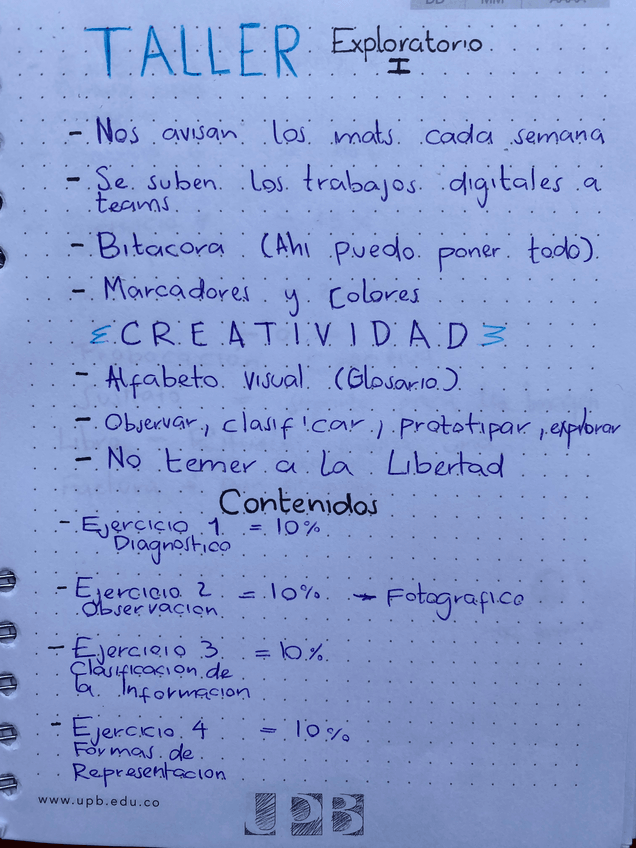 TALLER Exploratorio I
- Nos avisan los mats cada semana
- Se suben los trabajos digitales a
teams
- Bitacora (Ahi puedo poner todo).
- Marcadores y colores
CREATIVIDAD
- Alfabeto visual (Glosario)
- Observar, clasificar, prototipar, explorar
- No temer a la Libertad
Contenidos
- Ejercicio 1 = 10%
Diagnostico
- Ejercicio 2 = 10% → Fotografico
Observacion
- Ejercicio 3 = 10%
Clasificacion de
la Informacion
- Ejercicio 4 = 10%
Formas de
Representacion
www.upb.edu.co
UPB